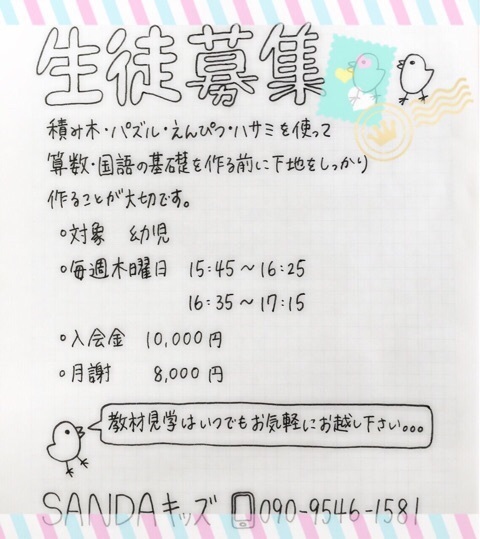 生徒募集
積み木・パズル・えんぴつ・ハサミを使って
算数・国語の基礎を作る前に下地をしっかり
作ることが大切です。
○対象　幼児
○毎週木曜日　15:45〜16:25
16:35〜17:15
○入会金　10,000円
○月謝　8,000円
教材見学はいつでもお気軽にお越し下さい...
SANDAキッズ 090-9546-1581